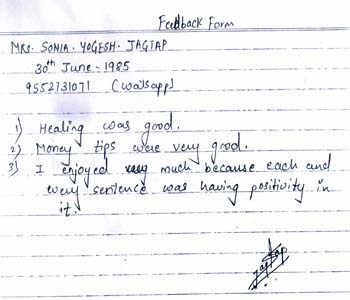 Feedback Form
MRS. SONIA. YOGESH. JAGTAP
30th June - 1985
9552731071 (watsapp)
1) Healing was good.
2) Money tips were very good.
3) I enjoyed very much because each and
every sentence was having positivity in
it.
Jagtap